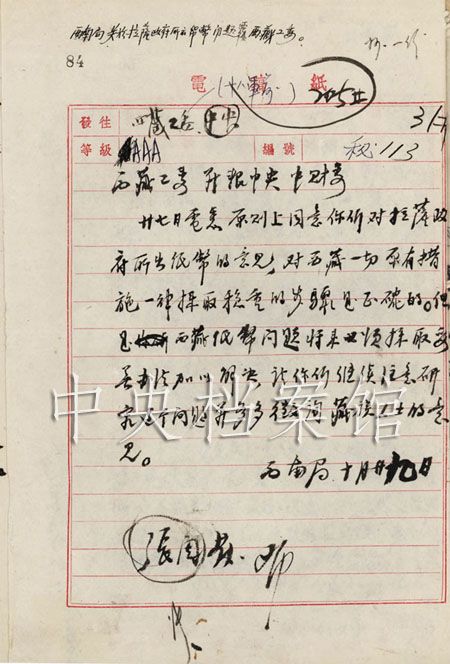 西南局关于拉萨政府所出纸币问题覆西藏工委。
84
電 稿 紙
發往 西藏工委 中央
等級 AAAA 編號 秘113
西藏工委 并報中央 中财委
廿七日電悉 原则上同意你们对拉薩政
府所出纸幣的意见,对西藏一切原有措
施一律採取稳重的步骤是正确的。但
是西藏纸幣问题将来必須採取妥
善办法加以解决,请你们继续注意研
究这个问题并多多徵询藏族人士的意
见。
西南局 十月廿九日
中央档案馆
張国